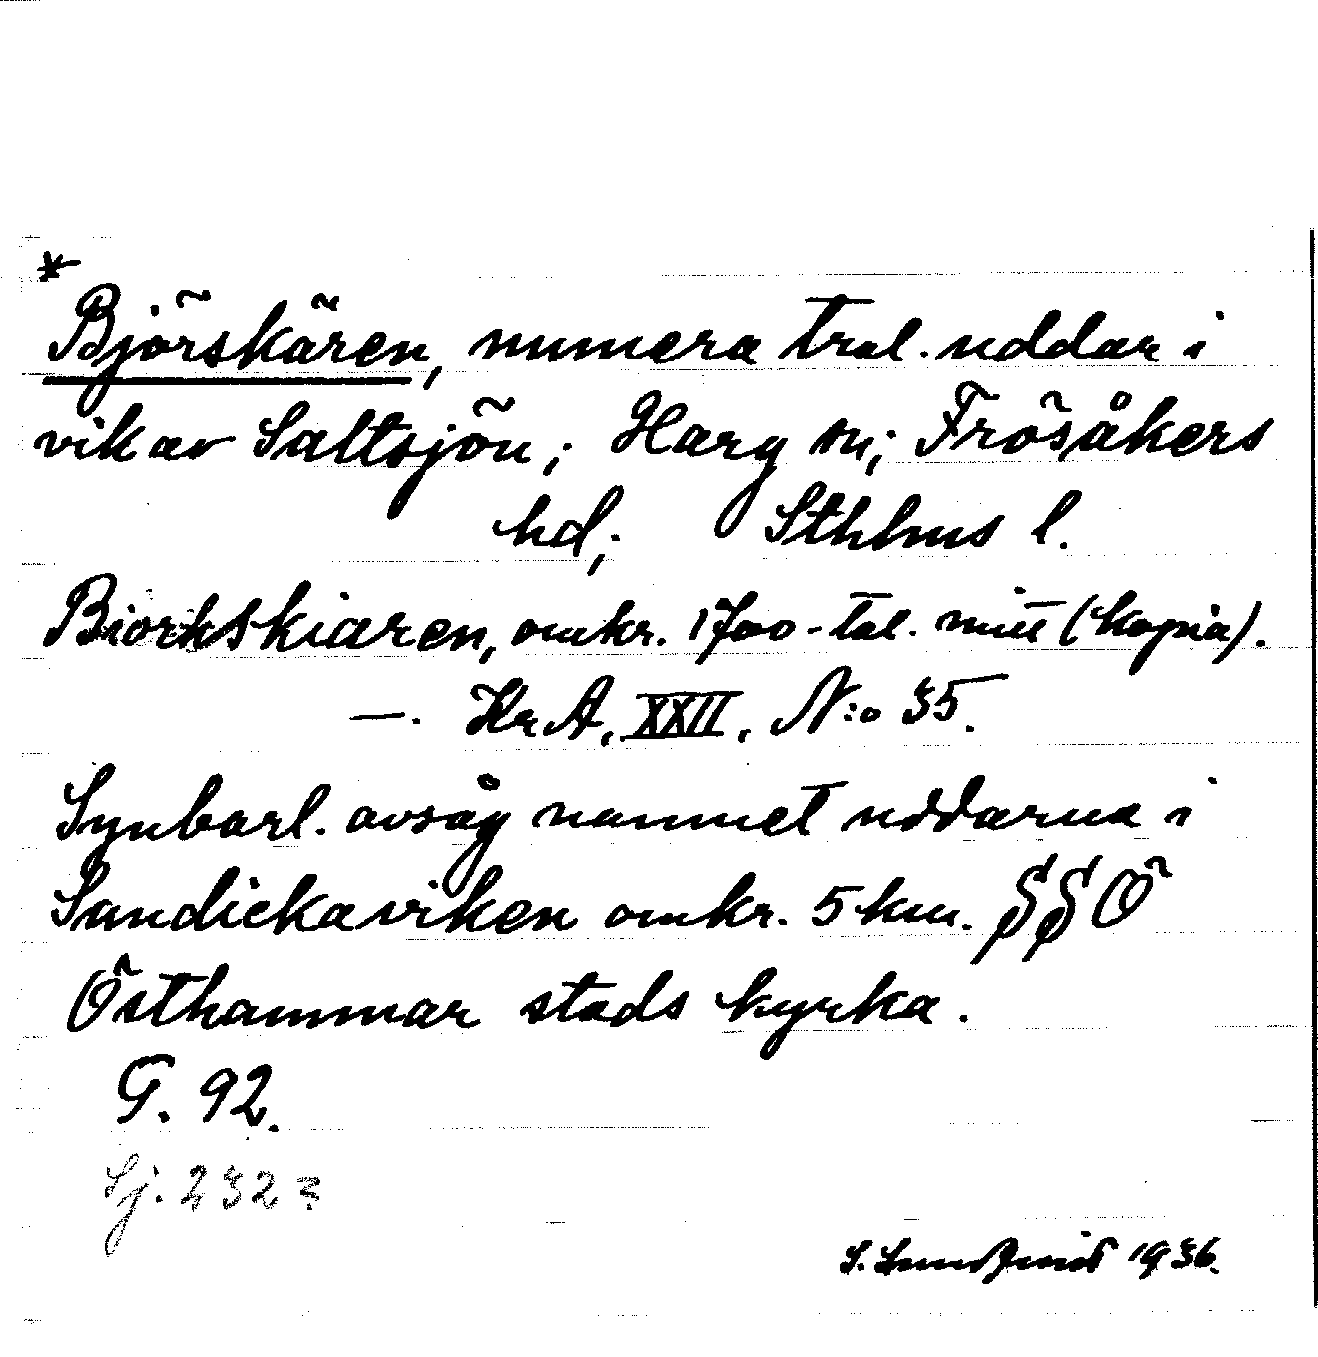 *
Björskären, numera trol. uddar i
vik av Saltsjön; Harg sn; Frösåkers
hd; Sthlms l.
Biorkskiaren, omkr. 1700-tal. mitt (kopia).
—. KrA, XXII, N:o 35.
Synbarl. avsåg namnet uddarna i
Sandikaviken omkr. 5 km. SSÖ
Östhammar stads kyrka.
G. 92.
Sj. 232 ?
S. Lundqvist 1936.